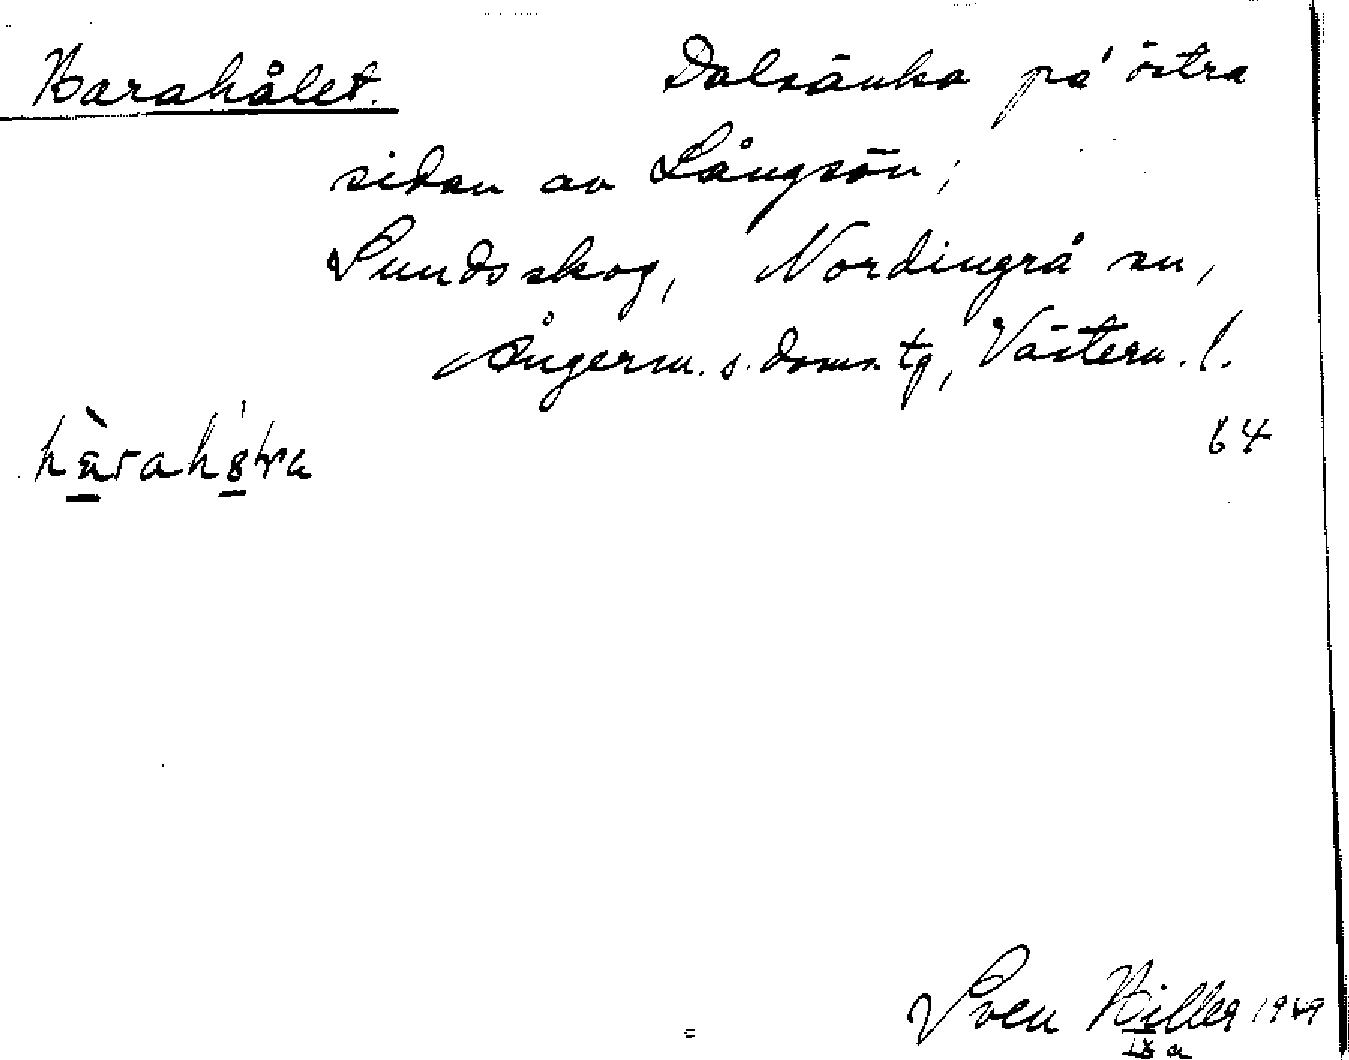 Harahålet. Dalsänka på östra
sidan av Långsön,
Sundsskog, Nordingrå sn,
Ångerm. s. doms. tg, Västern. l.
64
Sven Hiller 1949